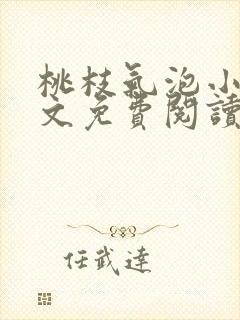 桃枝氣泡小
文免費閱讀
任武達